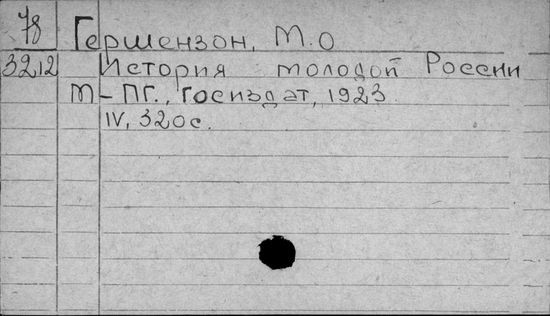 78 Гершензон, М.О
3212 История молодой России
М-ПГ., Госиздат, 1923.
IV, 320с.